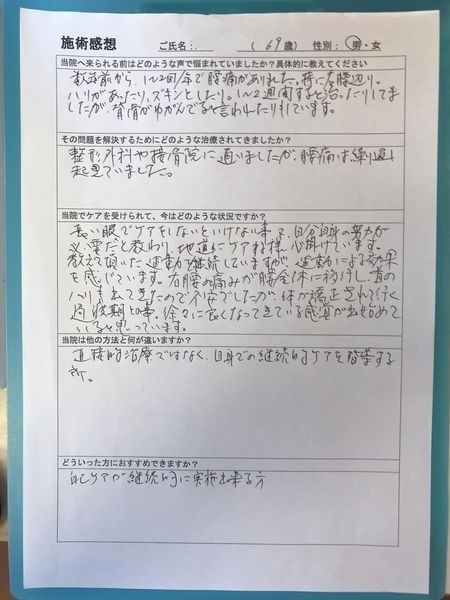 施術感想　ご氏名：　（69歳）　性別：男・女
当院へ来られる前はどのような声で悩まれていましたか？具体的に教えてください
数年前から、1〜2回/年で腰痛がありました。特に右腰辺り。
ハリがあったり、ズキンとしたり。1〜2週間すると治ったりしてま
したが、背骨がゆがんでると言われたりもしています。
その問題を解決するためにどのような治療されてきましたか？
整形外科や接骨院に通いましたが、腰痛は繰り返し
起きていました。
当院でケアを受けられて、今はどのような状況ですか？
長い眼でケアをしないといけない事と、自分自身の努力が
必要だと教わり、地道にケアする様心掛けています。
教えて頂いた運動を継続していますが、運動による効果
を感じています。右腰の痛みが腰全体に移行し、首の
ハリも出てきたので不安でしたが、体が矯正されて行く
過渡期の事、徐々に良くなってきている感覚が出始めて
いると思っています。
当院は他の方法と何が違いますか？
直接的治療ではなく、自身での継続的ケアを督導する
所。
どういった方におすすめできますか？
自己ケアが継続的に実施出来る方